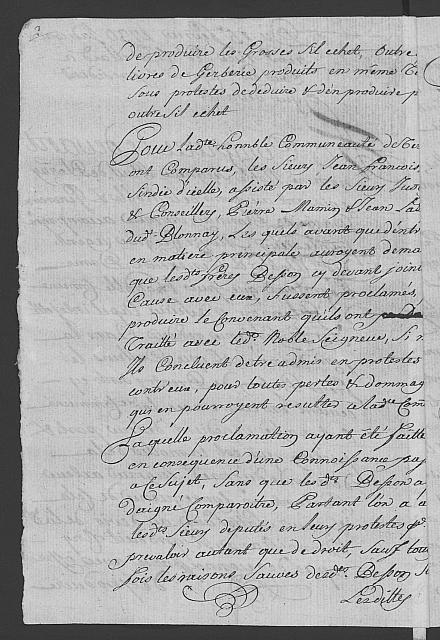 de produire les Grosses sil echet, outre
livres de Gerberie produits en même Te
sous protestes de deduire & d'en produire p
outre sil echet
Pour Ladte honnble Communeauté de Ter
ont Comparus, les Sieurs Jean François
Sindic d'icelle, assisté par les Sieurs
& Conseillers, Pierre Mamin & Jean
dud: Blonnay, Les quels avant que d'entr
en matiere principale auroyent dema
que lesdts freres Besson cy devant Joint
Cause avec eux, fussent proclamés,
produire le Convenant qu'ils ont
Traitté avec led: Noble Seigneur, Si n
Ils Concluent detre admis en protestes
contr'eux, pour toutes pertes & dommag
qui en pourroyent resulter a ladte Com
Laquelle proclamation ayant été faitte
en consequence d'une Connoissance pas
a ce sujet, Sans que lesds: Besson a
daigné Comparoitre, Partant l'on a a
lesdts Sieurs deputés en leurs protestes pr
prevaloir autant que de droit, Sauf tou
fois les raisons, Sauves desds: Besson,
Lesdittes